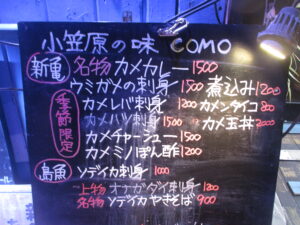 小笠原の味 COMO
新亀 名物 カメカレー 1500
ウミガメの刺身 1500 煮込み 1200
季節限定 カメレバ刺身 1200 カメンタイコ 800
カメハツ刺身 1500 カメ玉丼 2000
カメチャーシュー 1500
カメミノぽん酢 1200
島魚 ソデイカ刺身 1000
上物 オナガダイ刺身 1200
名物 ソデイカやきそば 900